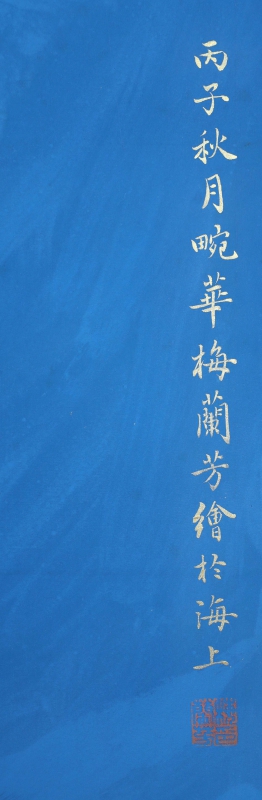 丙子秋月畹華梅蘭芳繪於海上